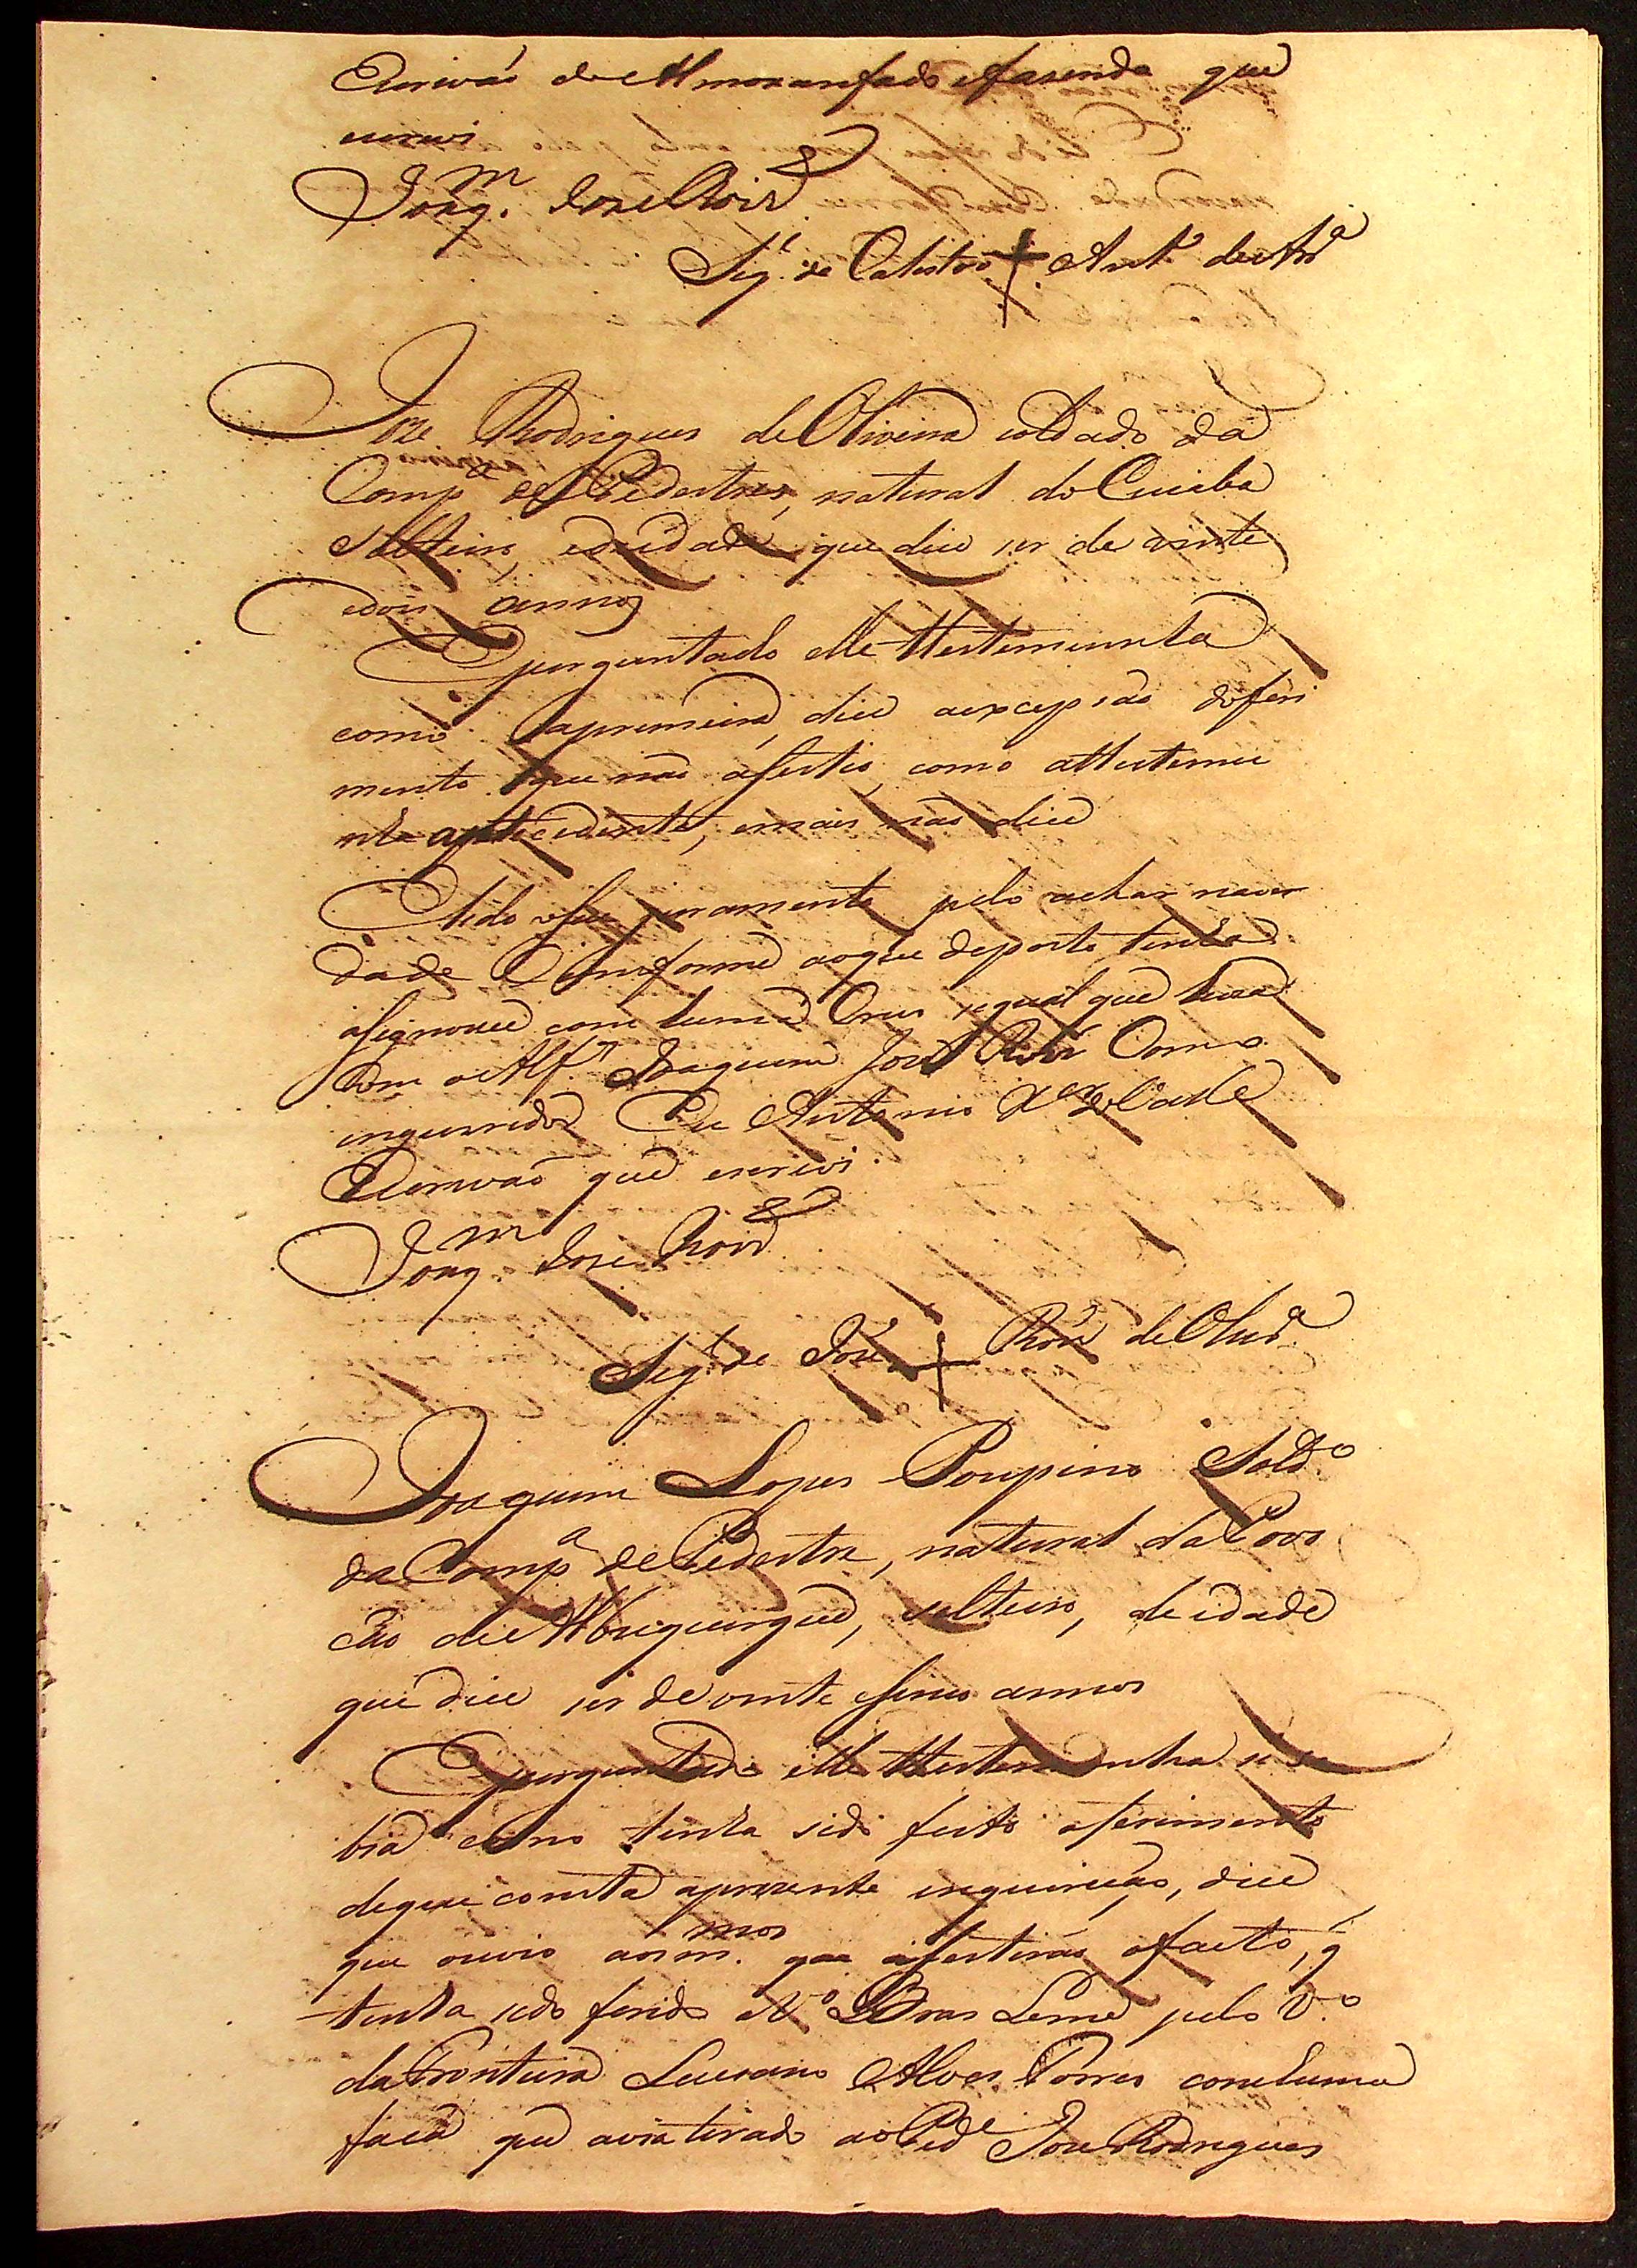 Escrivaõ do Almoxarifado efasenda que
escrevi
Joaq.m Joze Roiz
Sig.l de Calisto + Ant.o de Ar.o
Joze Rodrigues de Oliveira soldado da
Comp.a de Pedestres, natural do Cuiaba
solteiro, edeidade que dice ser de vinte
edois annos
Eperguntado elle Ttestemunha
como aprimeira, dice aexcepsaõ doferi
mento que naõ asestio, como attestemu
nha antecedente, emais naõ dice
Elido oseu juramento pelo achar naver
dade Comforme aoque deposto tinha
asignouce com huma Crus segual que huza
com o Alf.s Joaquim José Roiz Como
inqueridor Eu Antonio X.er do Valle
Escrivaõ que escrevi.
Joaq.m Joze Roiz
Sig.l de Joze + Roiz de Oliv.ra
Joaquim Lopes Poupino Sold.o
da Comp.a de Pedestre, natural da Povo
çaõ de Albuquerque, solteiro, de idade
que dice ser de vinte esinco annos
Eperguntado elle Ttestemunha se sa
bia como tinha sido feito oferimento
deque consta aprezente inquiriçaõ, dice
que ouvio aos m.mos que asestiraõ ofacto, q̃
tinha sido ferido Bras Leme pelo
da Fronteira Luciano Alves Torres comhuma
faca que avia tirado ao Ped.e Joze Rodrigues